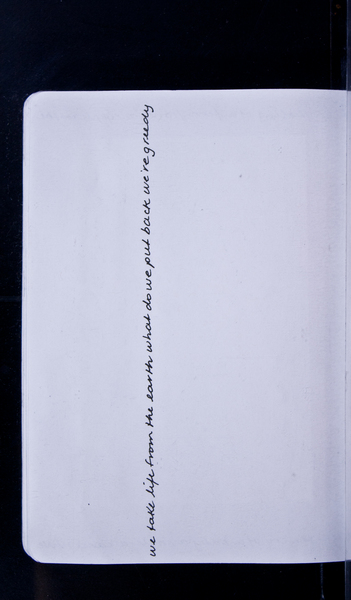 we take life from the earth what do we put back we're greedy